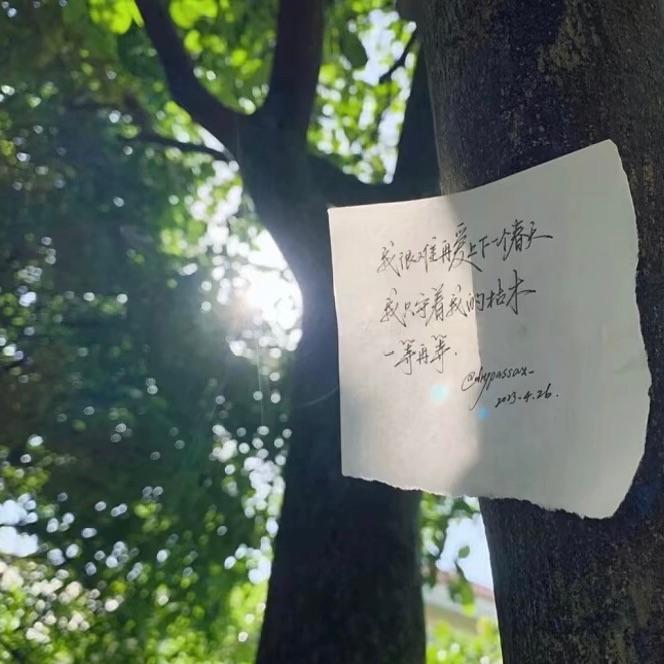 我很难再爱上下一个春天
我只守着我的枯木
一等再等.
2023.4.26.